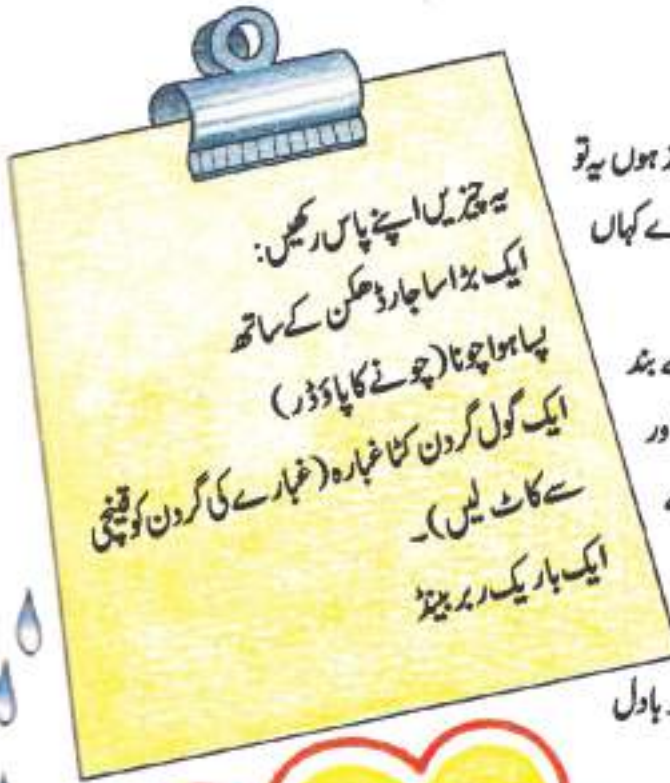 یہ چیزیں اپنے پاس رکھیں:
ایک بڑا سا جار ڈھکن کے ساتھ
پسا ہوا چونا (چونے کا پاؤڈر)
ایک گول گردن کٹا غبارہ (غبارے کی گردن کو قینچی
سے کاٹ لیں)۔
ایک باریک ربر بینڈ
ہوں یہ تو
کہاں
بند
بادل